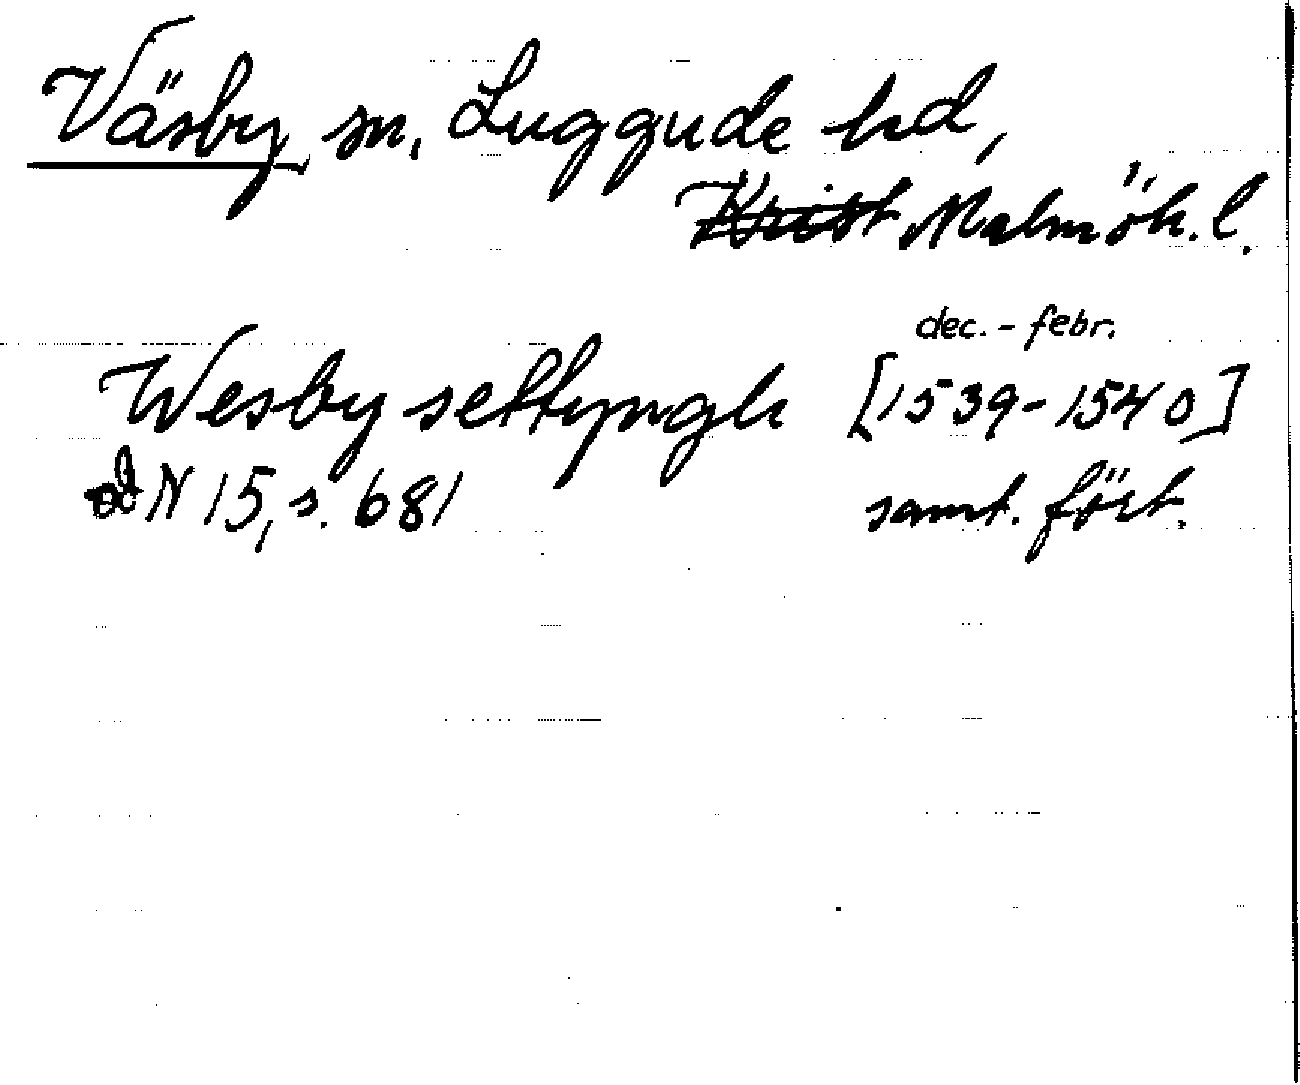 Väsby sn, Luggude hd,
Krist Malmöh. l.
dec. - febr.
Wesby settyngh [1539-1540]
N 15, s. 681 samt. fört.